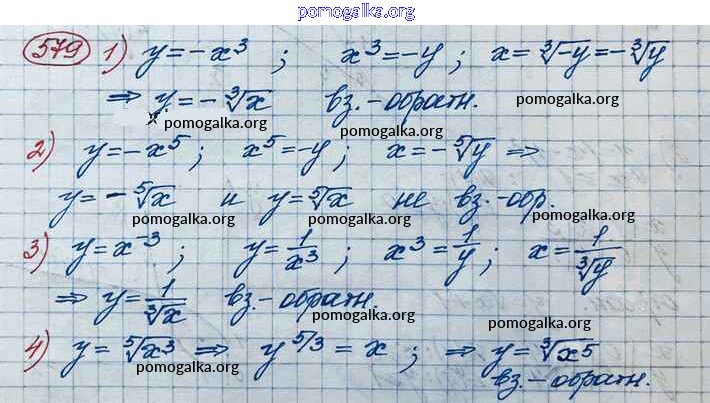 pomogalka.org
579 1) y = -x³ ; x³ = -y ; x = ∛-y = -∛y
⇒ y = -∛x вз.-обратн. pomogalka.org
pomogalka.org pomogalka.org
2) y = -x⁵ ; x⁵ = -y ; x = -⁵√y ⇒
y = -⁵√x и y = ⁵√x не вз.-обр.
pomogalka.org pomogalka.org pomogalka.org
3) y = x⁻³ ; y = 1/x³ ; x³ = 1/y ; x = 1/∛y
pomogalka.org pomogalka.org
⇒ y = 1/∛x вз.-обратн.
pomogalka.org pomogalka.org
4) y = ⁵√x³ ⇒ y^5/3 = x ; ⇒ y = ∛x⁵
pomogalka.org pomogalka.org вз.-обратн.